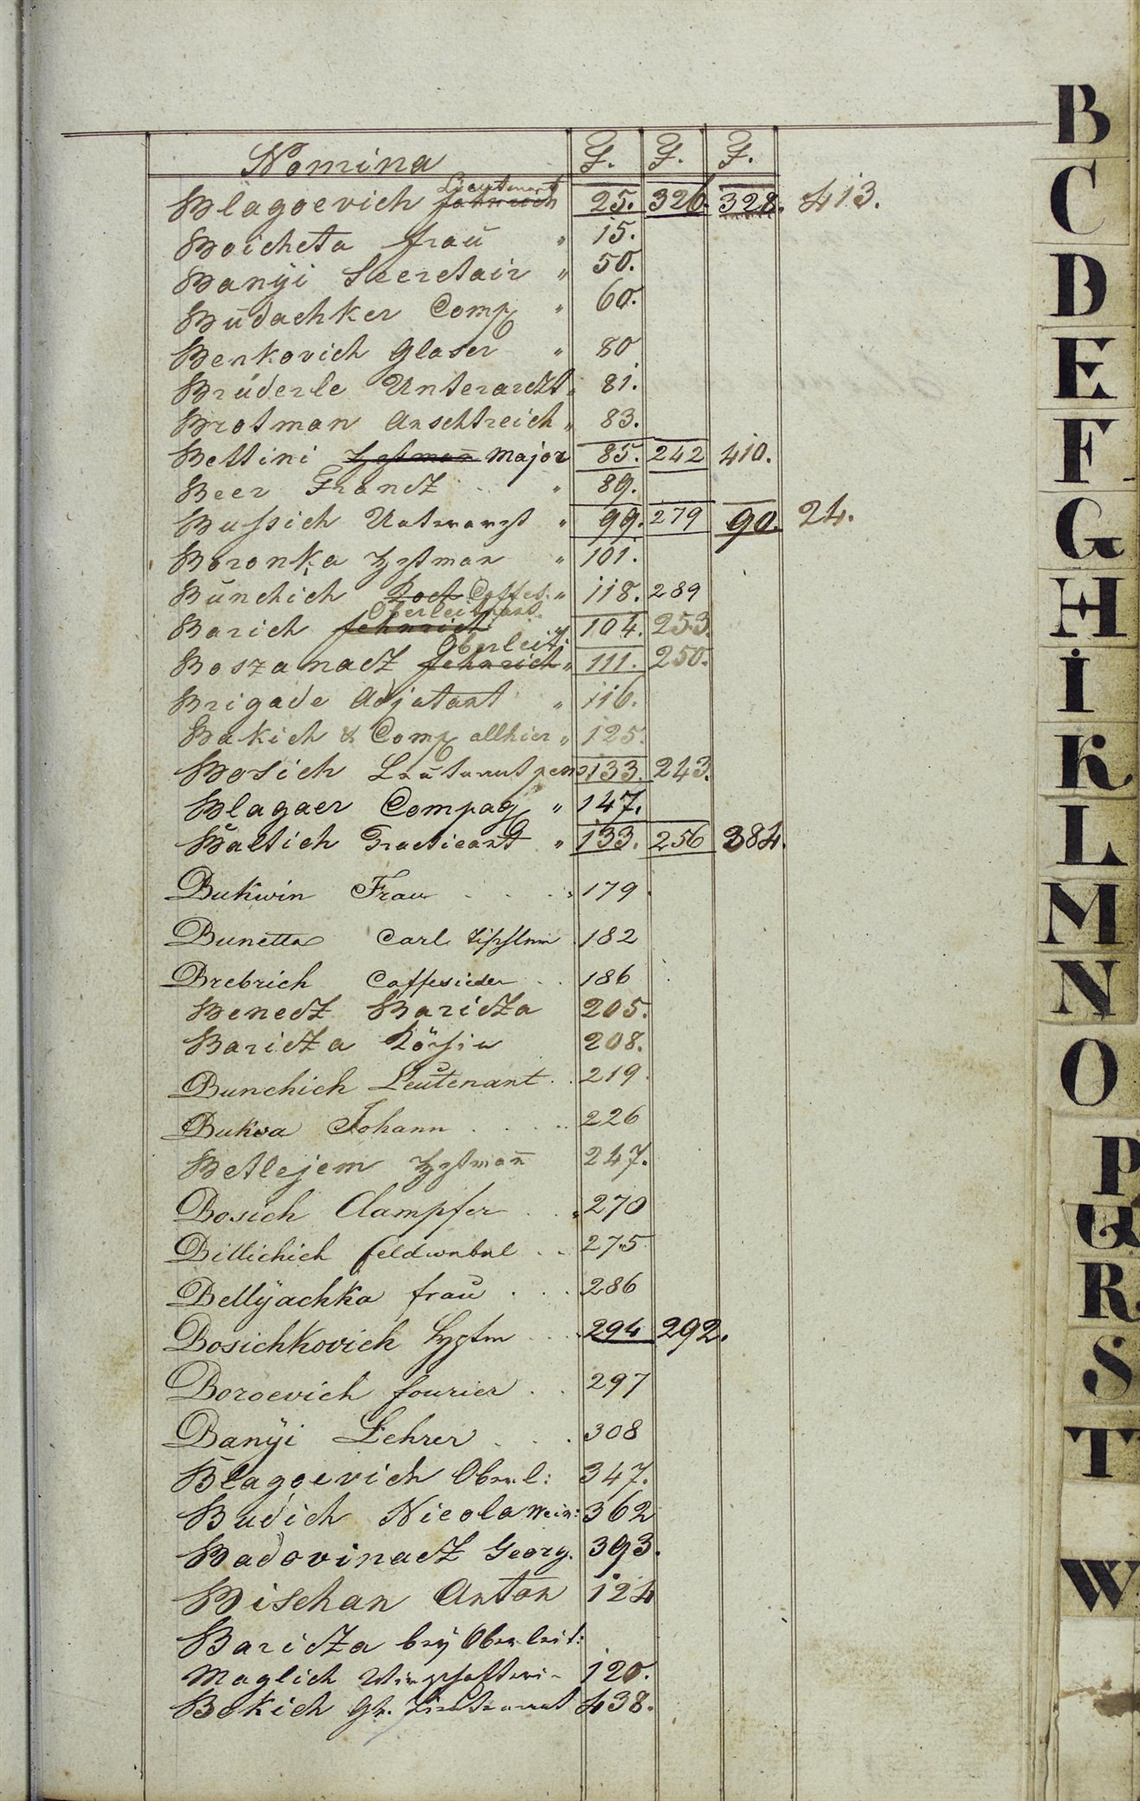 Nomina F. F. F.
Blagoevich Lieutenant 25. 326. 328. 413.
Boicheta frau " 15.
Banÿi Secretair " 50.
Budachker Comp " 60.
Benkovich Glaser " 80
Brüderle Unterarczt " 81.
Brotman Anschtreich " 83.
Bettini Major 85. 242 410.
Beer Francz " 89.
Bussich " 99. 279 90. 24.
Boronka Hptman " 101.
Bunchich Caffes. " 118. 289
Barich Oberleitnant fehnrich 104. 253.
Boszanacz Oberleit. fehnrich " 111. 250.
Brigade Adjutant " 116.
Bakich & Comp allhier " 125.
Bosich Leutenant pens 133. 243.
Blagaer Compag " 147.
Baltich Practicant " 133. 256 384.
Bukwin Frau 179
Bunetta Carl 182
Brebrich Caffesieder 186
Benecz Baricza 205.
Baricza 208.
Bunchich Leutenant 219.
Bukva Johann 226
Betlejem Hptman 247.
Bosich Clampfer 270
Billichich feldwebel 275
Bellÿachka frau 286
Bosichkovich Hptm 294 292.
Boroevich fourier 297
Banÿi Lehrer 308
Blagoevich Oberl: 347.
Budich Nicola Wein: 362
Badovinacz Georg. 393.
Bischan Anton 124
Baricza bey Oberleit:
Maglich 120.
Bokich Gr. Lieutenant 438.
B
C
D
E
F
G
H
I
K
L
M
N
O
P
Q
R
S
T
W